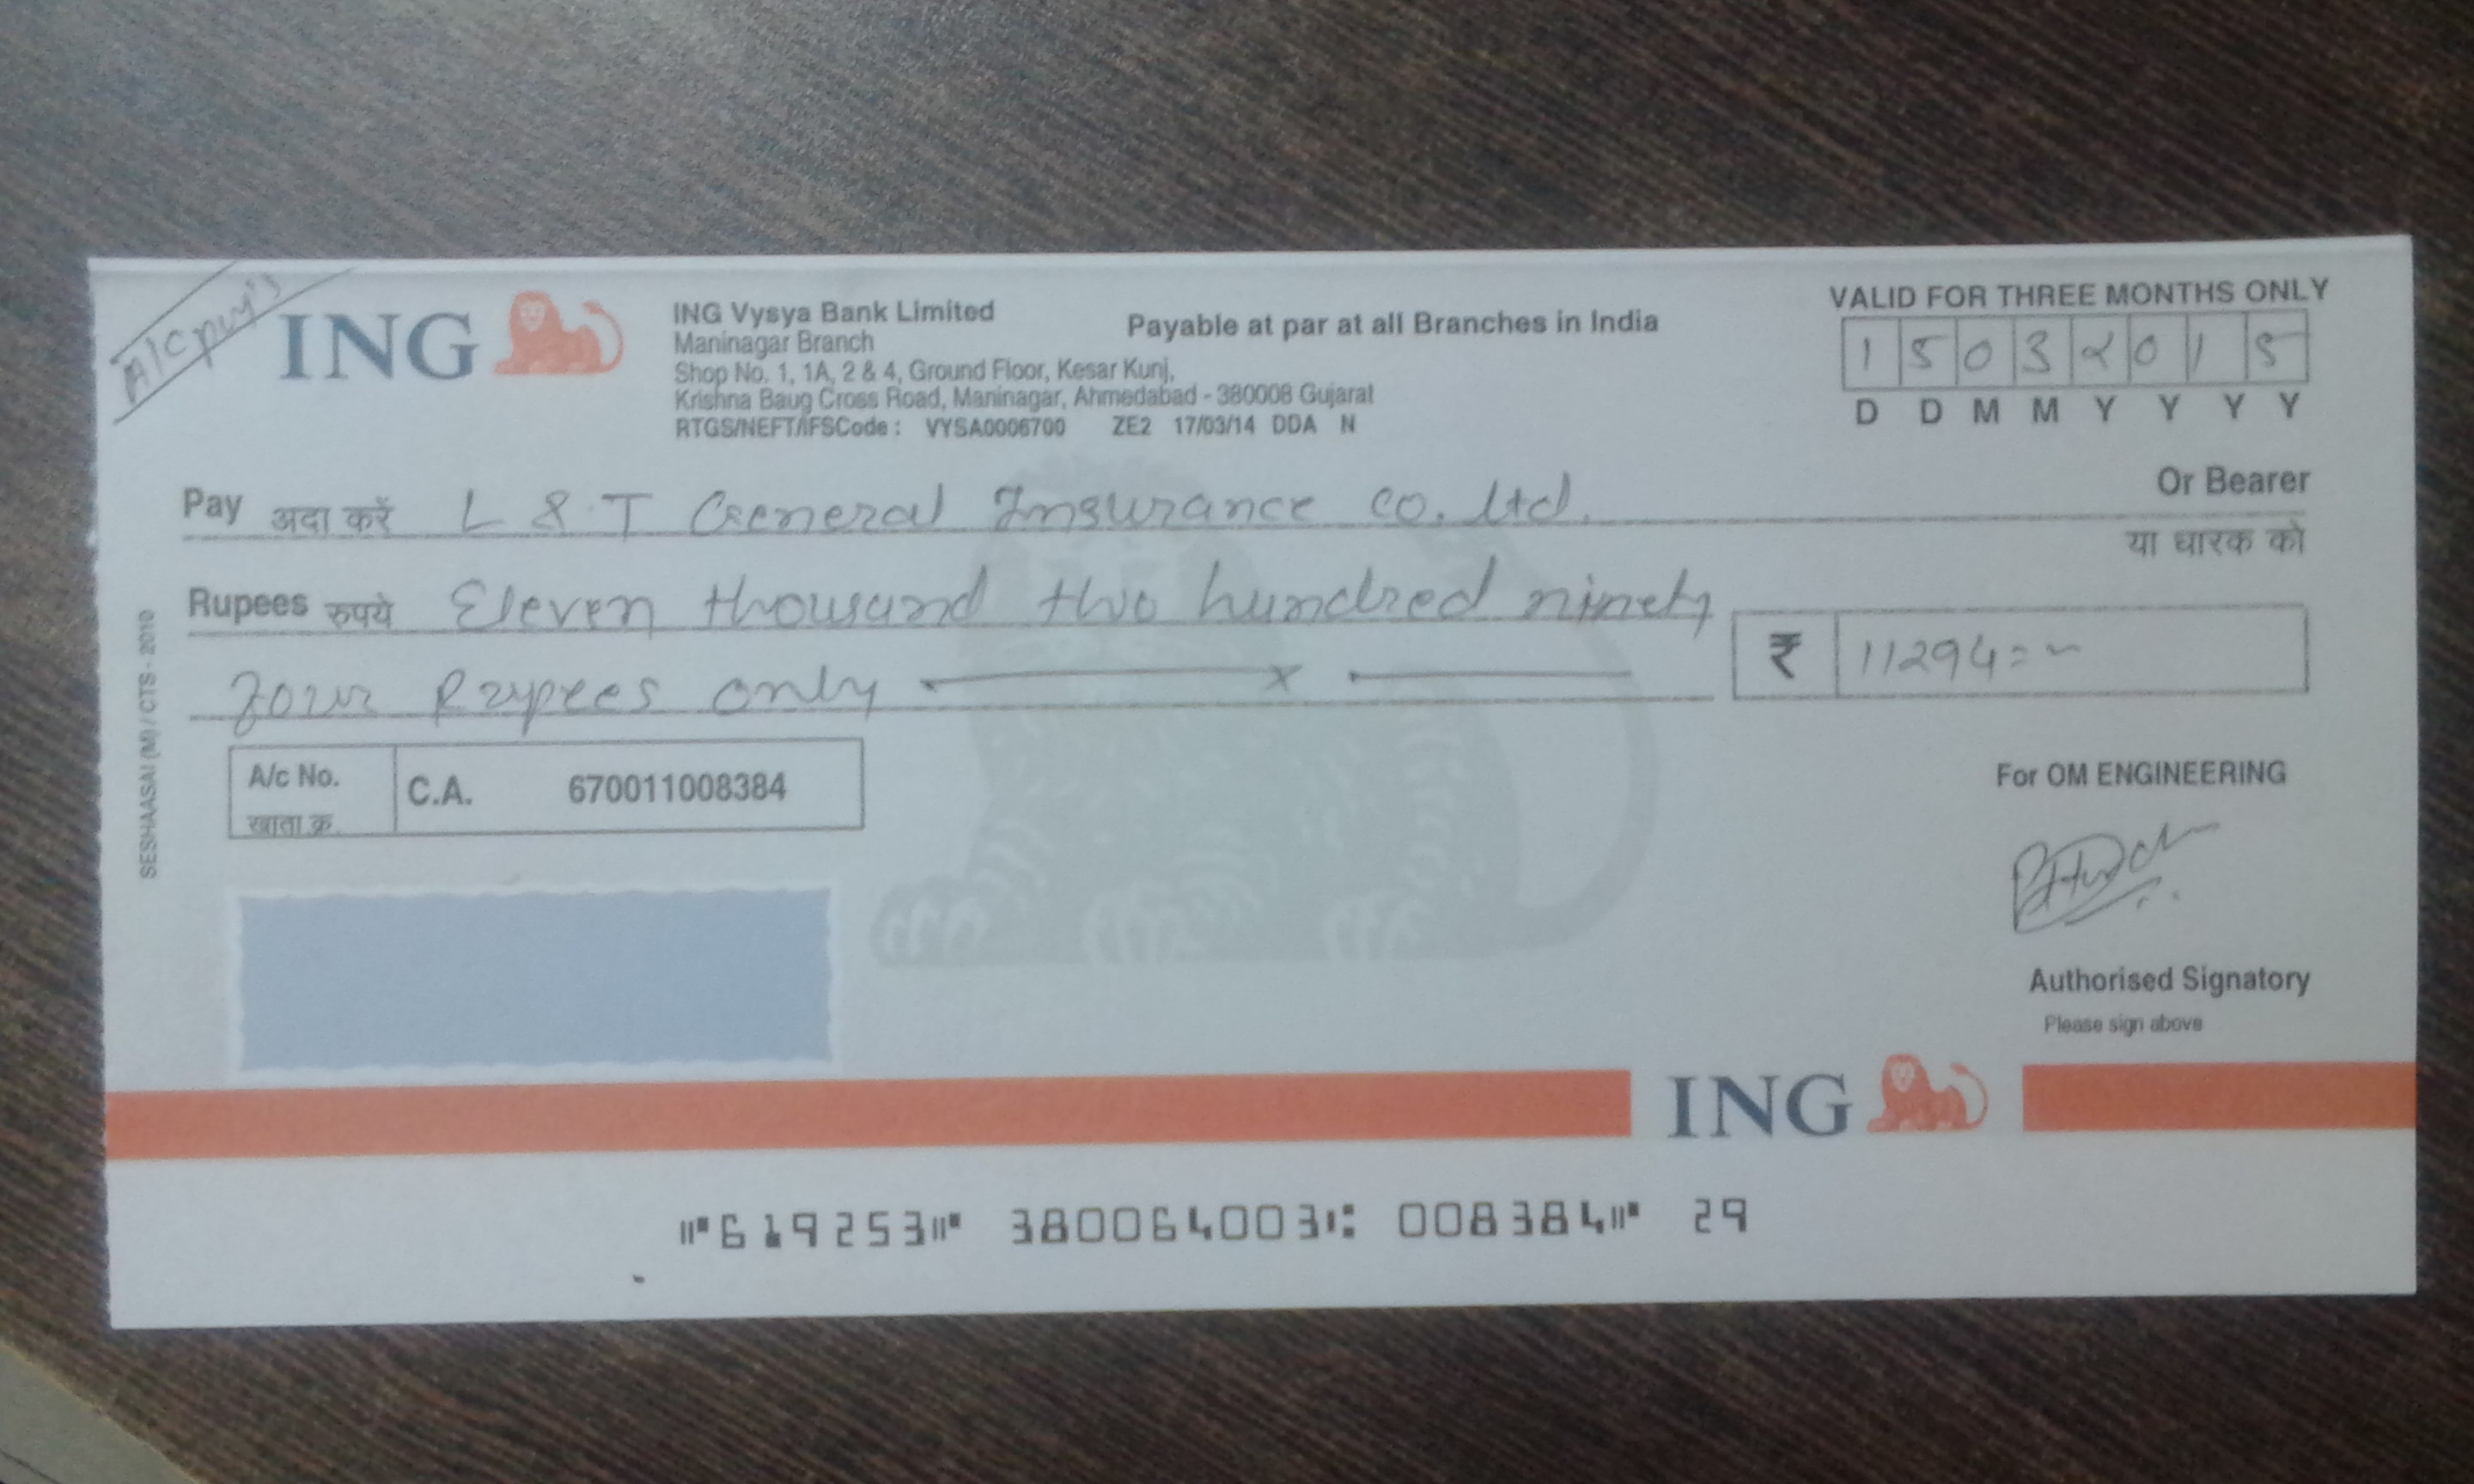 A/C pay's
ING
ING Vysya Bank Limited
Maninagar Branch
Shop No. 1, 1A, 2 & 4, Ground Floor, Kesar Kunj,
Krishna Baug Cross Road, Maninagar, Ahmedabad - 380008 Gujarat
RTGS/NEFT/IFSCode : VYSA0006700 ZE2 17/03/14 DDA N
Payable at par at all Branches in India
VALID FOR THREE MONTHS ONLY
1 5 0 3 2 0 1 5
D D M M Y Y Y Y
Pay अदा करें L & T General Insurance co. Ltd.
Or Bearer
या धारक को
Rupees रुपये Eleven thousand two hundred ninety
four Rupees only x
₹ 11294=~
A/c No. C.A. 670011008384
खाता क्र.
SESHAASAI (M) / CTS - 2010
For OM ENGINEERING
Authorised Signatory
Please sign above
ING
⑈619253⑈ 380064003⑆ 008384⑈ 29